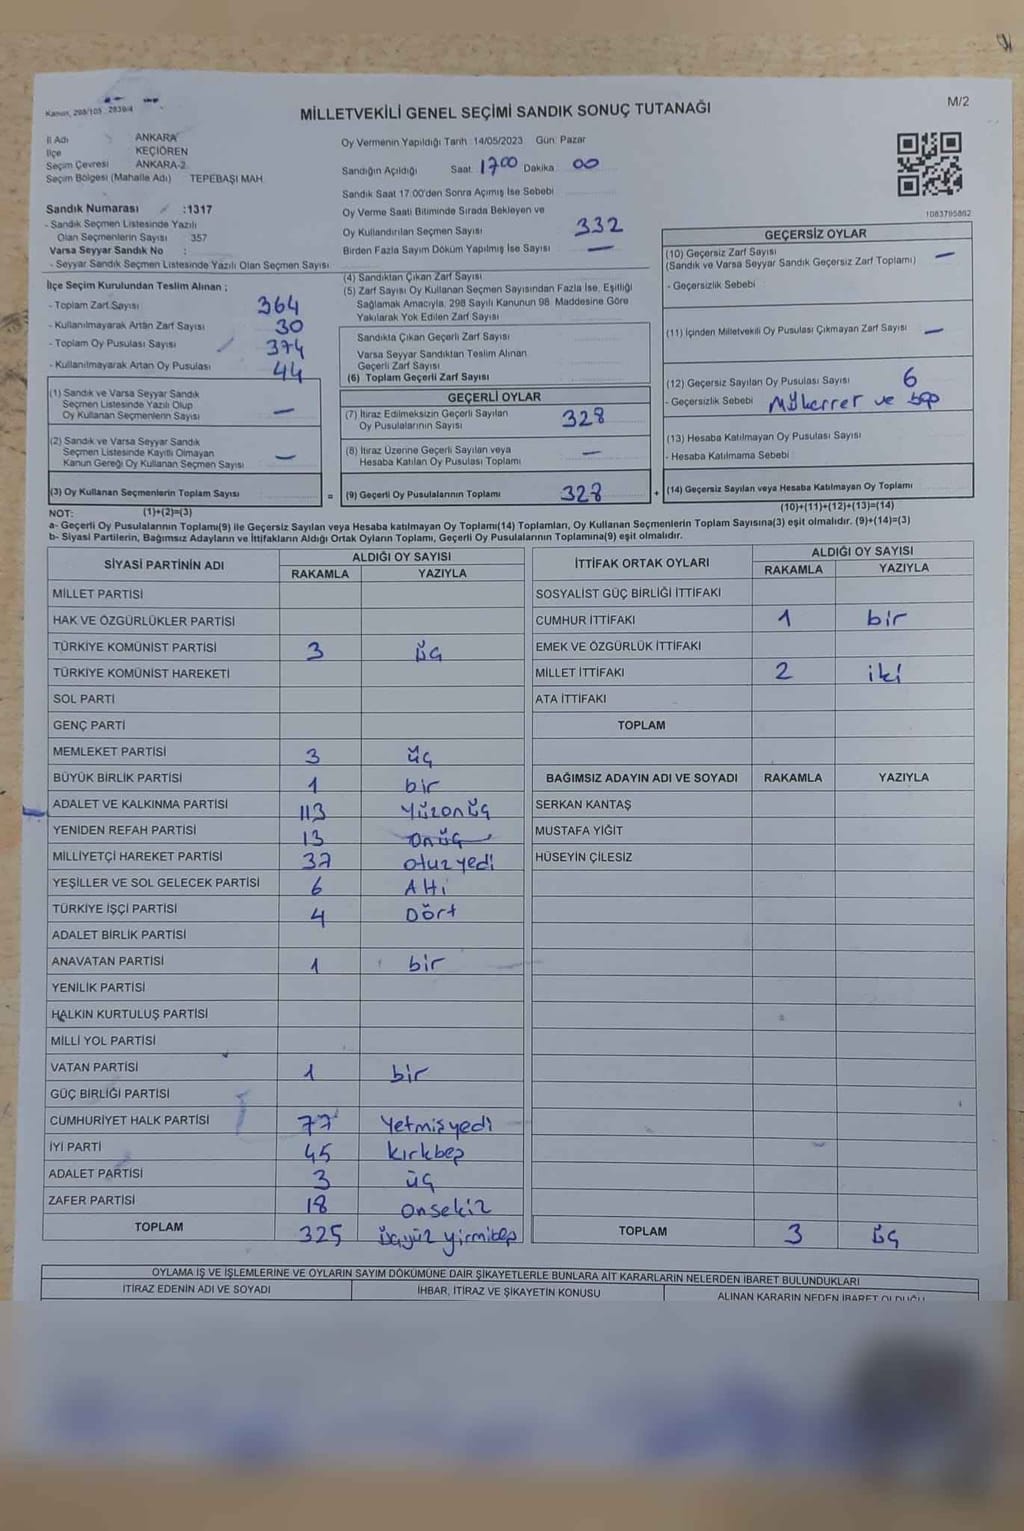 Kanun, 298/105 - 2839/4
MİLLETVEKİLİ GENEL SEÇİMİ SANDIK SONUÇ TUTANAĞI
M/2
İl Adı ANKARA
İlçe KEÇİÖREN
Seçim Çevresi ANKARA-2
Seçim Bölgesi (Mahalle Adı) TEPEBAŞI MAH.
Sandık Numarası :1317
- Sandık Seçmen Listesinde Yazılı
Olan Seçmenlerin Sayısı : 357
Varsa Seyyar Sandık No :
- Seyyar Sandık Seçmen Listesinde Yazılı Olan Seçmen Sayısı
Oy Vermenin Yapıldığı Tarih :14/05/2023 Gün: Pazar
Sandığın Açıldığı Saat 17:00 Dakika 00
Sandık Saat 17.00'den Sonra Açılmış İse Sebebi
Oy Verme Saati Bitiminde Sırada Bekleyen ve
Oy Kullandırılan Seçmen Sayısı 332
Birden Fazla Sayım Döküm Yapılmış İse Sayısı —
1083795862
İlçe Seçim Kurulundan Teslim Alınan ;
- Toplam Zarf Sayısı 364
- Kullanılmayarak Artan Zarf Sayısı 30
- Toplam Oy Pusulası Sayısı 374
- Kullanılmayarak Artan Oy Pusulası 44
(1) Sandık ve Varsa Seyyar Sandık
Seçmen Listesinde Yazılı Olup
Oy Kullanan Seçmenlerin Sayısı —
(2) Sandık ve Varsa Seyyar Sandık
Seçmen Listesinde Kayıtlı Olmayan
Kanun Gereği Oy Kullanan Seçmen Sayısı —
(3) Oy Kullanan Seçmenlerin Toplam Sayısı =
(4) Sandıktan Çıkan Zarf Sayısı
(5) Zarf Sayısı Oy Kullanan Seçmen Sayısından Fazla İse, Eşitliği
Sağlamak Amacıyla, 298 Sayılı Kanunun 98. Maddesine Göre
Yakılarak Yok Edilen Zarf Sayısı
Sandıkta Çıkan Geçerli Zarf Sayısı
Varsa Seyyar Sandıktan Teslim Alınan
Geçerli Zarf Sayısı
(6) Toplam Geçerli Zarf Sayısı
GEÇERLİ OYLAR
(7) İtiraz Edilmeksizin Geçerli Sayılan
Oy Pusulalarının Sayısı 328
(8) İtiraz Üzerine Geçerli Sayılan veya
Hesaba Katılan Oy Pusulası Toplamı —
(9) Geçerli Oy Pusulalarının Toplamı 328 +
GEÇERSİZ OYLAR
(10) Geçersiz Zarf Sayısı
(Sandık ve Varsa Seyyar Sandık Geçersiz Zarf Toplamı) —
- Geçersizlik Sebebi
(11) İçinden Milletvekili Oy Pusulası Çıkmayan Zarf Sayısı —
(12) Geçersiz Sayılan Oy Pusulası Sayısı 6
- Geçersizlik Sebebi Mükerrer ve boş
(13) Hesaba Katılmayan Oy Pusulası Sayısı
- Hesaba Katılmama Sebebi
(14) Geçersiz Sayılan veya Hesaba Katılmayan Oy Toplamı
NOT: (1)+(2)=(3)
(10)+(11)+(12)+(13)=(14)
a- Geçerli Oy Pusulalarının Toplamı(9) ile Geçersiz Sayılan veya Hesaba katılmayan Oy Toplamı(14) Toplamları, Oy Kullanan Seçmenlerin Toplam Sayısına(3) eşit olmalıdır. (9)+(14)=(3)
b- Siyasi Partilerin, Bağımsız Adayların ve İttifakların Aldığı Ortak Oyların Toplamı, Geçerli Oy Pusulalarının Toplamına(9) eşit olmalıdır.
SİYASİ PARTİNİN ADI ALDIĞI OY SAYISI
RAKAMLA YAZIYLA
MİLLET PARTİSİ
HAK VE ÖZGÜRLÜKLER PARTİSİ
TÜRKİYE KOMÜNİST PARTİSİ 3 üç
TÜRKİYE KOMÜNİST HAREKETİ
SOL PARTİ
GENÇ PARTİ
MEMLEKET PARTİSİ 3 üç
BÜYÜK BİRLİK PARTİSİ 1 bir
ADALET VE KALKINMA PARTİSİ 113 Yüzonüç
YENİDEN REFAH PARTİSİ 13 onüç
MİLLİYETÇİ HAREKET PARTİSİ 37 otuzyedi
YEŞİLLER VE SOL GELECEK PARTİSİ 6 Altı
TÜRKİYE İŞÇİ PARTİSİ 4 Dört
ADALET BİRLİK PARTİSİ
ANAVATAN PARTİSİ 1 bir
YENİLİK PARTİSİ
HALKIN KURTULUŞ PARTİSİ
MİLLİ YOL PARTİSİ
VATAN PARTİSİ 1 bir
GÜÇ BİRLİĞİ PARTİSİ
CUMHURİYET HALK PARTİSİ 77 Yetmişyedi
İYİ PARTİ 45 kırkbeş
ADALET PARTİSİ 3 üç
ZAFER PARTİSİ 18 onsekiz
TOPLAM 325 üçyüz yirmibeş
İTTİFAK ORTAK OYLARI ALDIĞI OY SAYISI
RAKAMLA YAZIYLA
SOSYALİST GÜÇ BİRLİĞİ İTTİFAKI
CUMHUR İTTİFAKI 1 bir
EMEK VE ÖZGÜRLÜK İTTİFAKI
MİLLET İTTİFAKI 2 iki
ATA İTTİFAKI
TOPLAM
BAĞIMSIZ ADAYIN ADI VE SOYADI RAKAMLA YAZIYLA
SERKAN KANTAŞ
MUSTAFA YİĞİT
HÜSEYİN ÇİLESİZ
TOPLAM 3 üç
OYLAMA İŞ VE İŞLEMLERİNE VE OYLARIN SAYIM DÖKÜMÜNE DAİR ŞİKAYETLERLE BUNLARA AİT KARARLARIN NELERDEN İBARET BULUNDUKLARI
İTİRAZ EDENİN ADI VE SOYADI İHBAR, İTİRAZ VE ŞİKAYETİN KONUSU ALINAN KARARIN NEDEN İBARET OLDUĞU